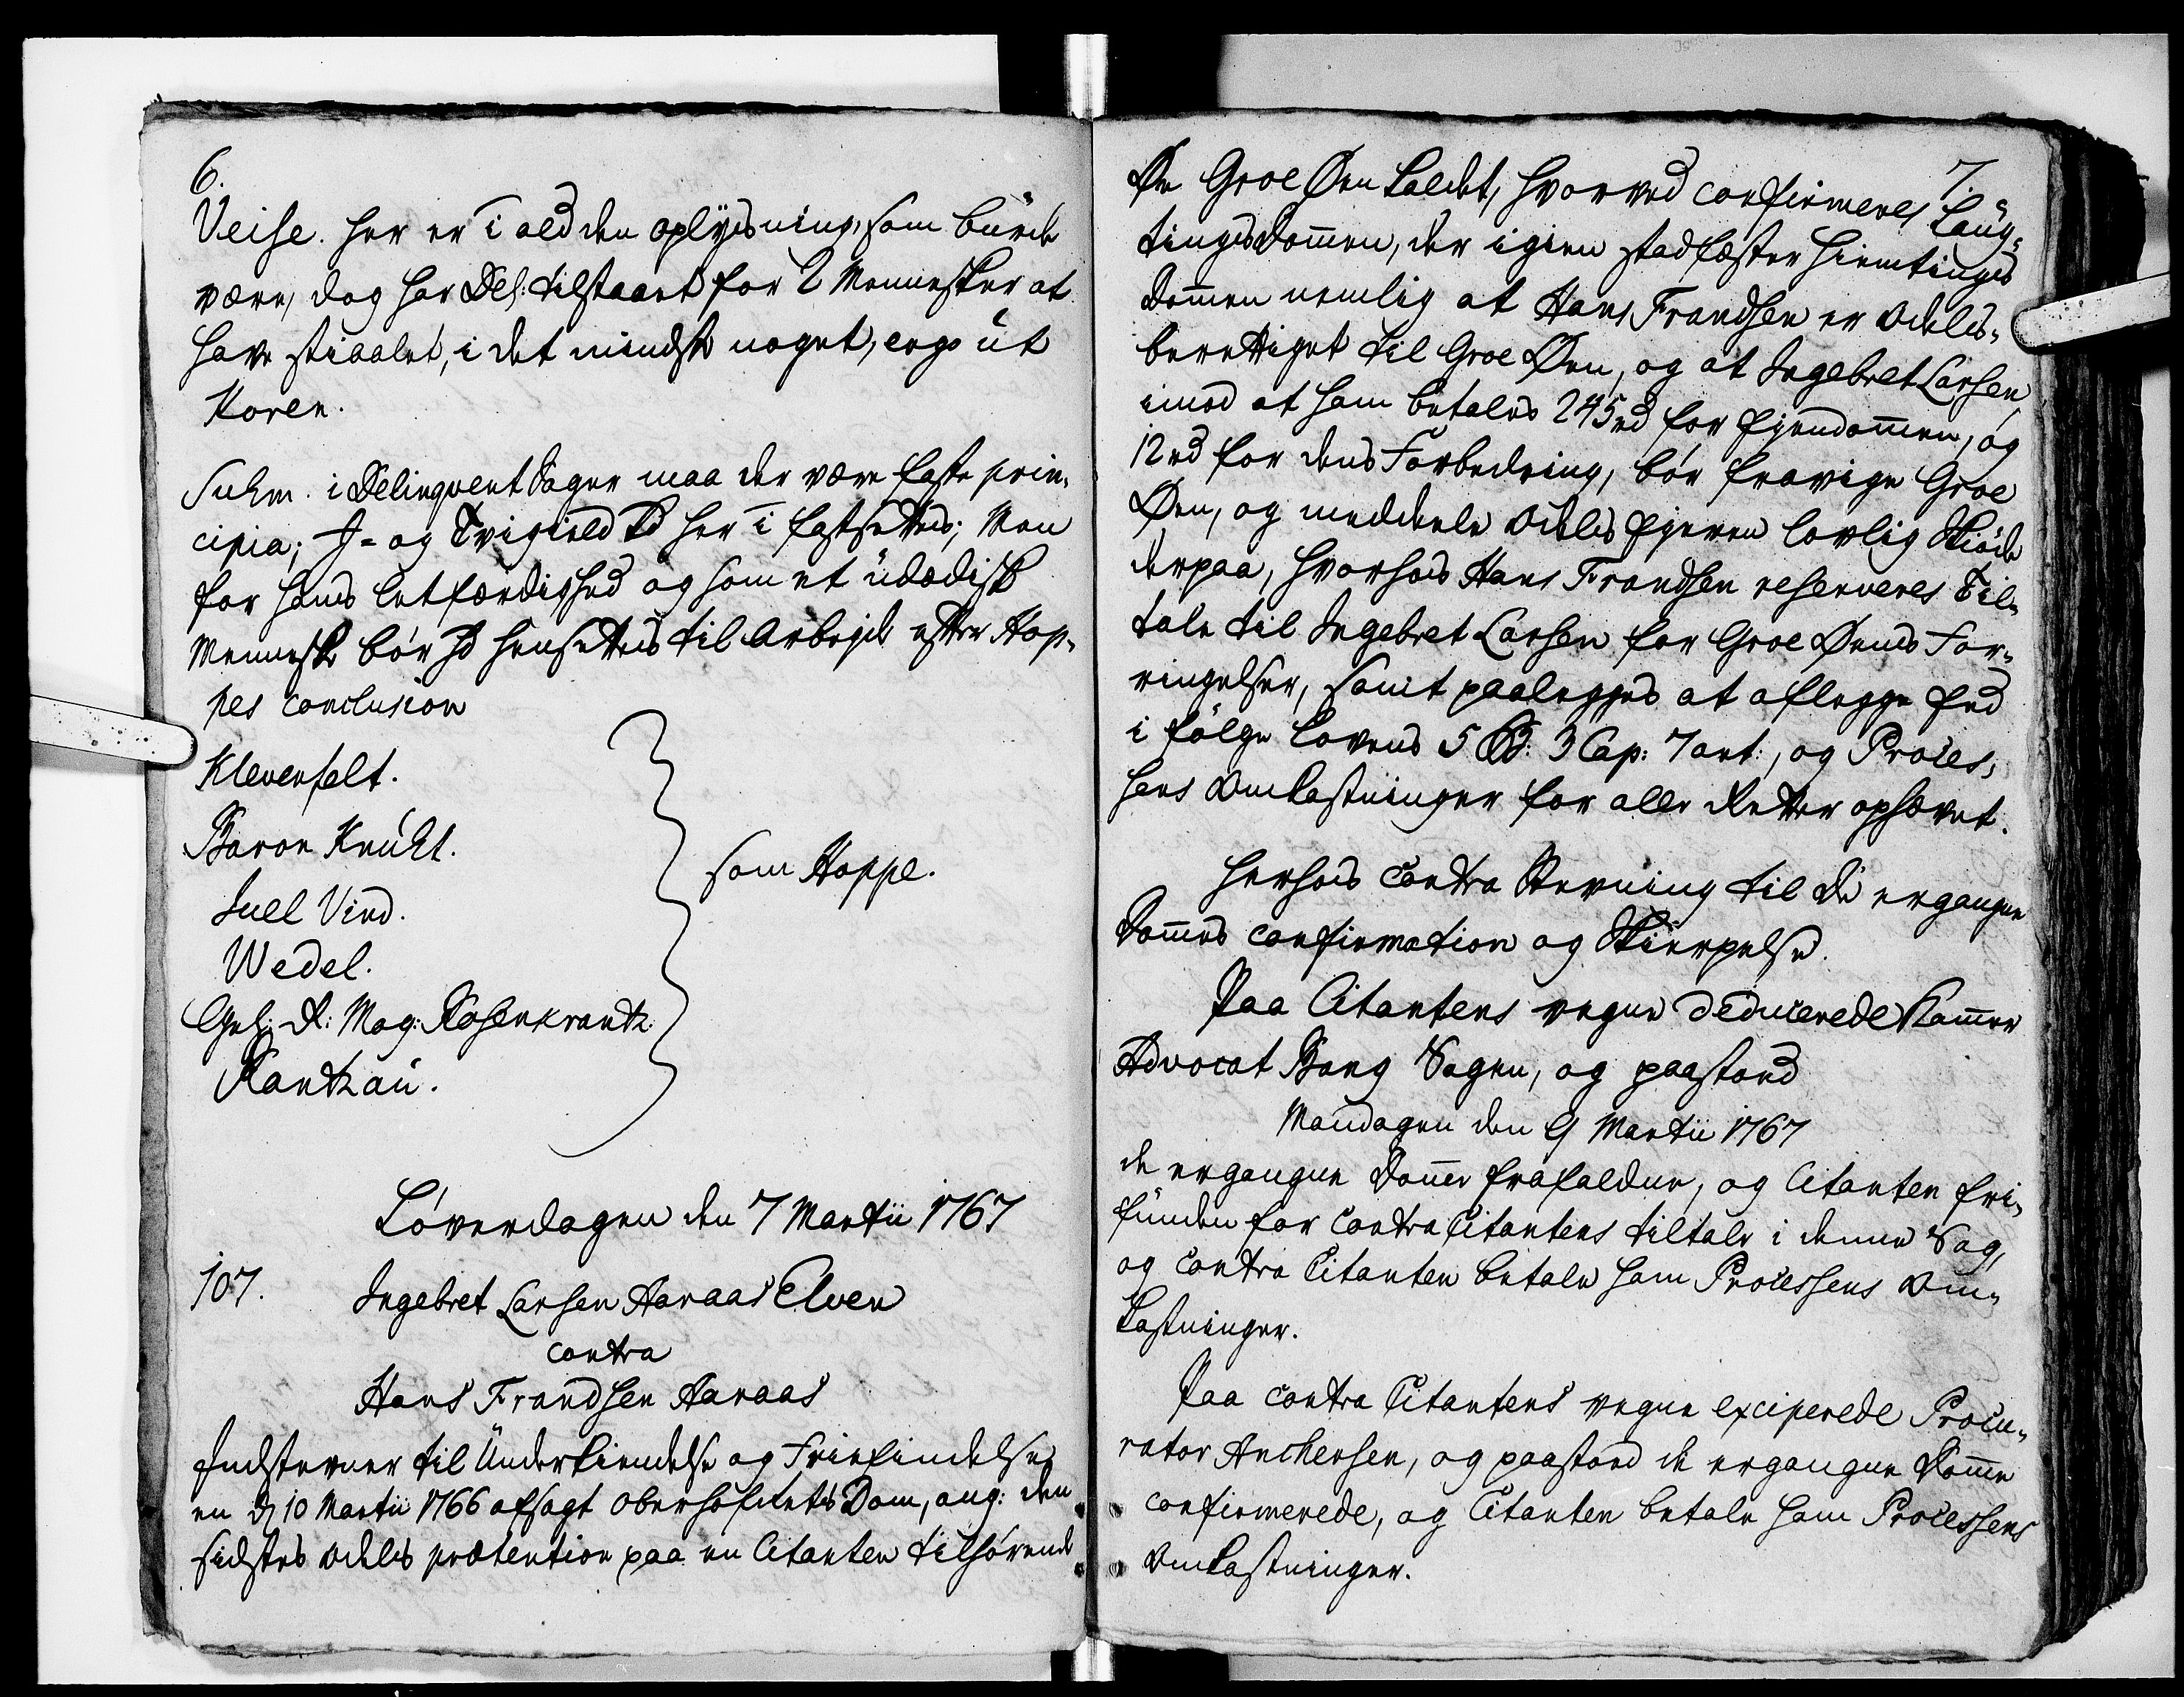 6.
Veise. her er i ald den oplysning, som burde
være, dog har Del: tilstaaet for 2 Mennesker at
have stiaalet, i det mindste noget, ergo ut
Koren.
Suhm. i Delinqvent Sager maa der være faste prin-
cipia; J- og Tvigield Ko her i fastsettes; Men
for hans letfærdighed og som et udædisk
Menneske bør hand hensettes til Arbejde efter Hop-
pes conclusion
Klevenfelt.
Baron Knuht.
Juel Vind.
Wedel.
Geh: R: Mag: Rosenkrantz.
Rantzau.
som Hoppe.
Løverdagen den 7 Martii 1767
107. Ingebret Larsen Aaraas Elven
contra
Hans Frandsen Aaraas
Indstevner til Underkiendelse og Friefindelse,
en d 10 Martii 1766 afsagt Oberhofrets Dom, ang: den
sidstes Odels prætention paa en Citanten tilhørende
7.
Øe Groe Øen kaldet, hvorved confirmeres Laug-
tingsdommen, der igien stadfæster Hiemtings
Dommen nemlig at Hans Frandsen er Odels-
berettiget til Groe Øen, og at Ingebret Larsen
imod at ham betales 245 rd for Ejendommen, og
12 rd for dens Forbedring, bør fravige Groe
Øen, og meddeele Odels Ejeren lovlig Skiøde
derpaa, hvorhos Hans Frandsen reserveres Til-
tale til Ingebret Larsen for Groe Øens For-
ringelser, samt paalegges at aflegge Eed
i følge Lovens 5 B: 3 Cap: 7 art:, og Proces-
sens Omkostninger for alle Retter ophævet.
Herhos Contra Stevning til de ergangne
Dommes confirmation og Skierpelse.
Paa Citantens vegne deducerede Kammer
Advocat Bang Sagen, og paastod
Mandagen den 9 Martii 1767
de ergangne Domme frafaldne, og Citanten fri-
funden for Contra Citantens tiltale i denne Sag,
og Contra Citanten betale ham Processens Om-
kostninger.
Paa Contra Citantens vegne exciperede Procu-
rator Anchersen, og paastod de ergangne Domme
confirmerede, og Citanten betale ham Processens
Omkostninger.